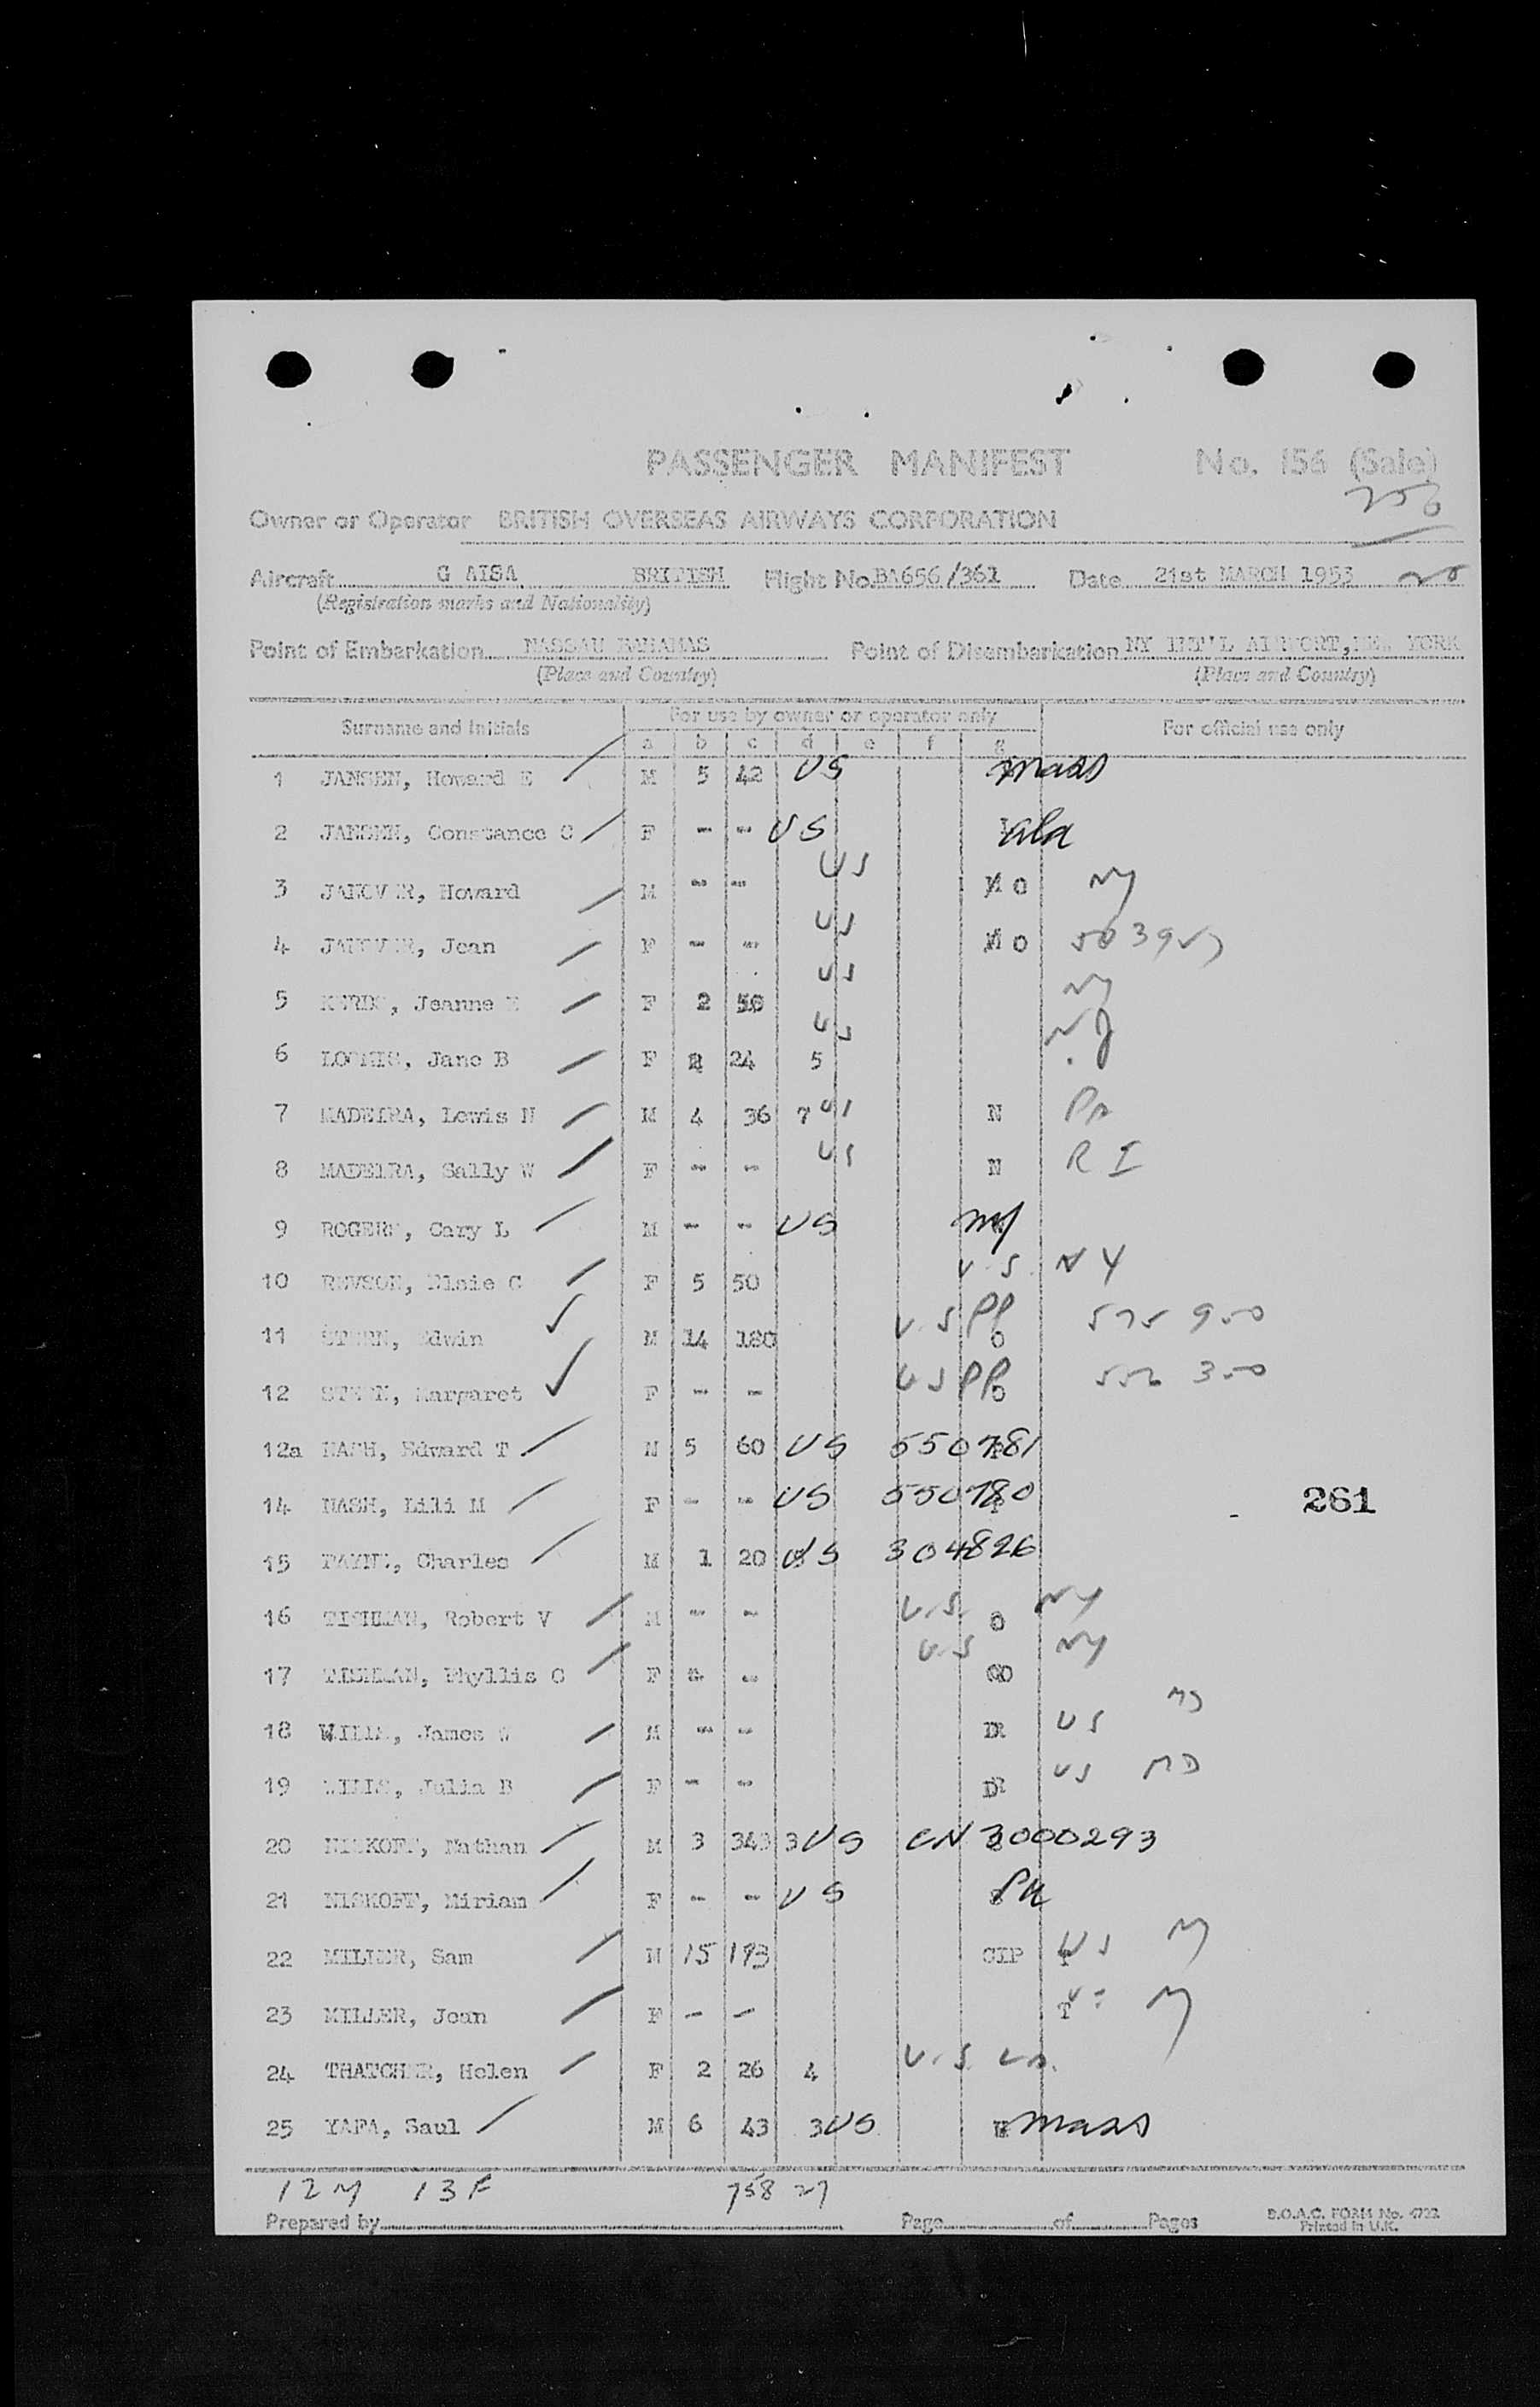 PASSENGER MANIFEST No. 156 (Sale)
256
Owner or Operator BRITISH OVERSEAS AIRWAYS CORPORATION
Aircraft G AISA BRITISH Flight No. BA656/361 Date 21st MARCH 1953
(Registration marks and Nationality)
Point of Embarkation NASSAU BAHAMAS Point of Disembarkation NY INT'L AIRPORT, NEW YORK
(Place and Country) (Place and Country)
Surname and Initials For use by owner or operator only For official use only
a b c d e f g
1 JANSEN, Howard E M 5 42 US Mass
2 JANSEN, Constance C F - - US Ala
3 JANOVER, Howard M - - US N O NY
4 JANOVER, Jean F - - US N O
5 Jeanne F 2 50 US NY
6 LOOMIS, Jane B F 2 24 5 US NJ
7 MADEIRA, Lewis N M 4 36 7 US N Pa
8 MADEIRA, Sally W F - - US N R I
9 ROGERS, Cary L M - - US NY
10 REVSON, Elsie C F 5 50 U.S. NY
11 STERN, Edwin M 14 180 U.S PP O 575 950
12 STERN, Margaret F - - US PP O 556 350
12a NASH, Edward T M 5 60 US 550781
14 NASH, Lili M F - - US 550780
261
15 PAYNE, Charles M 1 20 US 304826
16 TISHMAN, Robert V M - - U.S. O NY
17 TISHMAN, Phyllis C F - - U.S O NY
18 James M - - DR US MD
19 WILLS, Julia B F - - DR US MD
20 NISKOFF, Nathan M 3 343 3 US CN 3000293
21 NISKOFF, Miriam F - - US Pa
22 MILLER, Sam M 15 193 CIP US NY
23 MILLER, Jean F - - T US NY
24 THATCHER, Helen F 2 26 4 U.S.
25 YAFA, Saul M 6 43 3 US Mass
12 M 13 F 758 27
Prepared by Page of Pages
B.O.A.C. FORM No. 4722
Printed in U.K.